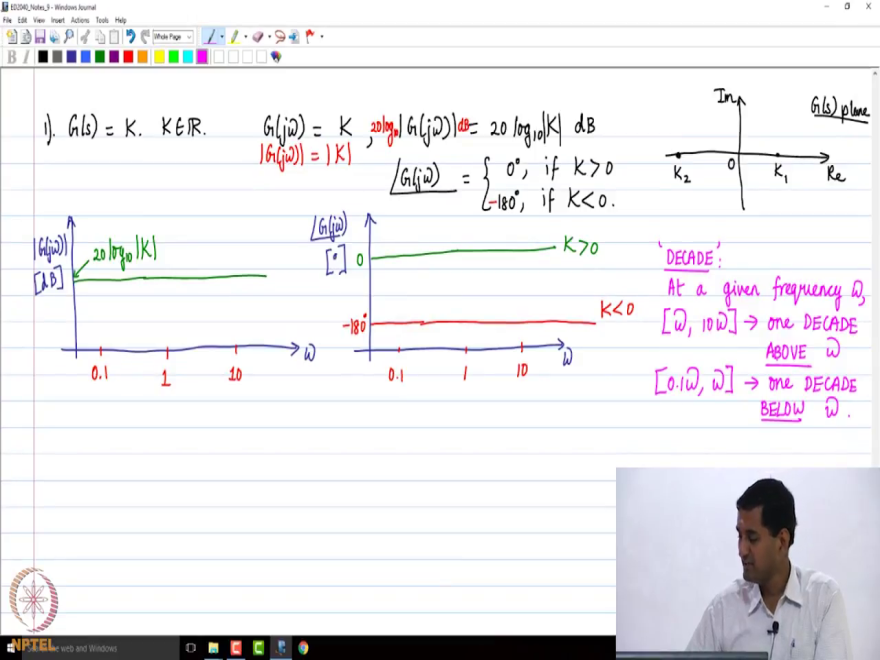 ED2040_Notes_9 - Windows Journal
File Edit View Insert Actions Tools Help
Whole Page
B I
1). G(s) = K. K∈ℝ. G(jω) = K , 20log₁₀|G(jω)|dB = 20 log₁₀|K| dB
|G(jω)| = |K|
∠G(jω) = { 0°, if K>0
-180°, if K<0.
Im
G(s) plane
K₂ 0 K₁ Re
|G(jω)|
[dB]
20 log₁₀|K|
0.1 1 10 ω
∠G(jω)
[°]
0
K>0
-180°
K<0
0.1 1 10 ω
'DECADE':
At a given frequency ω̄,
[ω̄, 10ω̄] → one DECADE
ABOVE ω̄
[0.1ω̄, ω̄] → one DECADE
BELOW ω̄.
NPTEL
the web and Windows